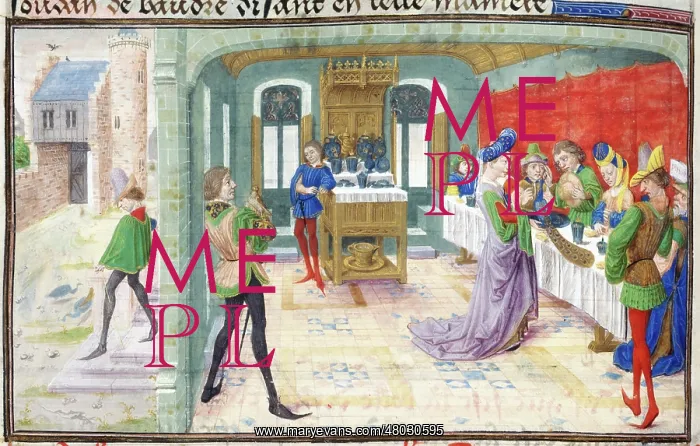 soudan de baudre disant en telle maniere
ME
PL
ME
PL
www.maryevans.com/48030595